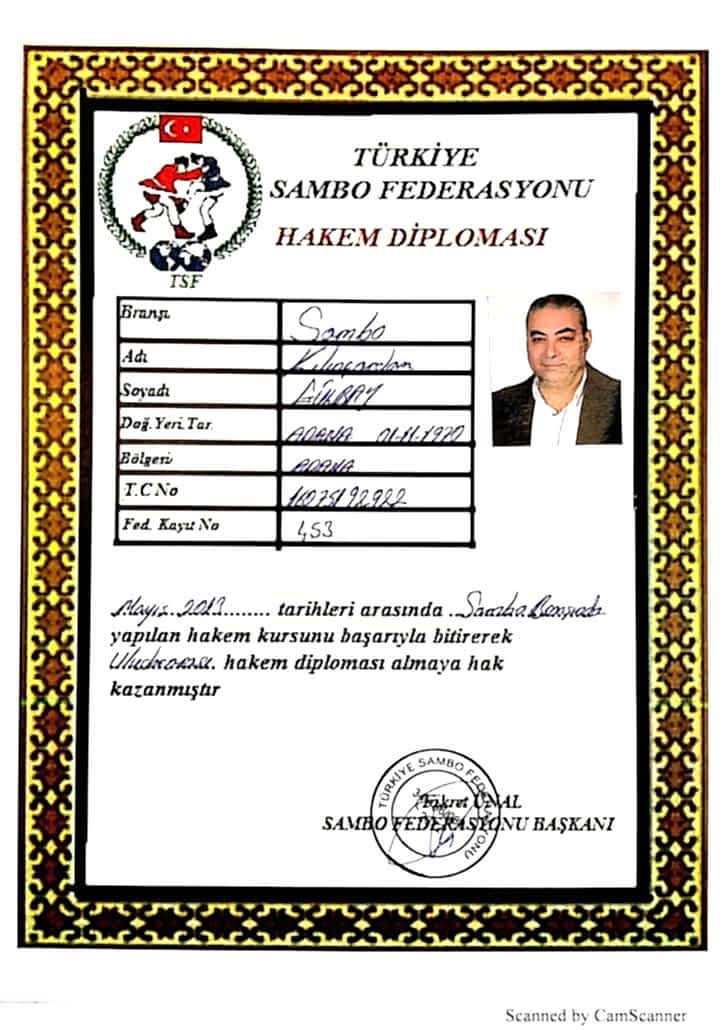 TÜRKİYE
SAMBO FEDERASYONU
HAKEM DİPLOMASI
TSF
Branşı Sambo
Adı Kılıçarslan
Soyadı
Doğ.Yeri.Tar. ADANA 01-11-1970
Bölgesi ADANA
T.C No
Fed. Kayıt No 453
Mayıs 2013........ tarihleri arasında . Sambo Branşında
yapılan hakem kursunu başarıyla bitirerek
Uluslararası. hakem diploması almaya hak
kazanmıştır
TÜRKİYE SAMBO FEDERASYONU
ÜNAL
SAMBO FEDERASYONU BAŞKANI
Scanned by CamScanner